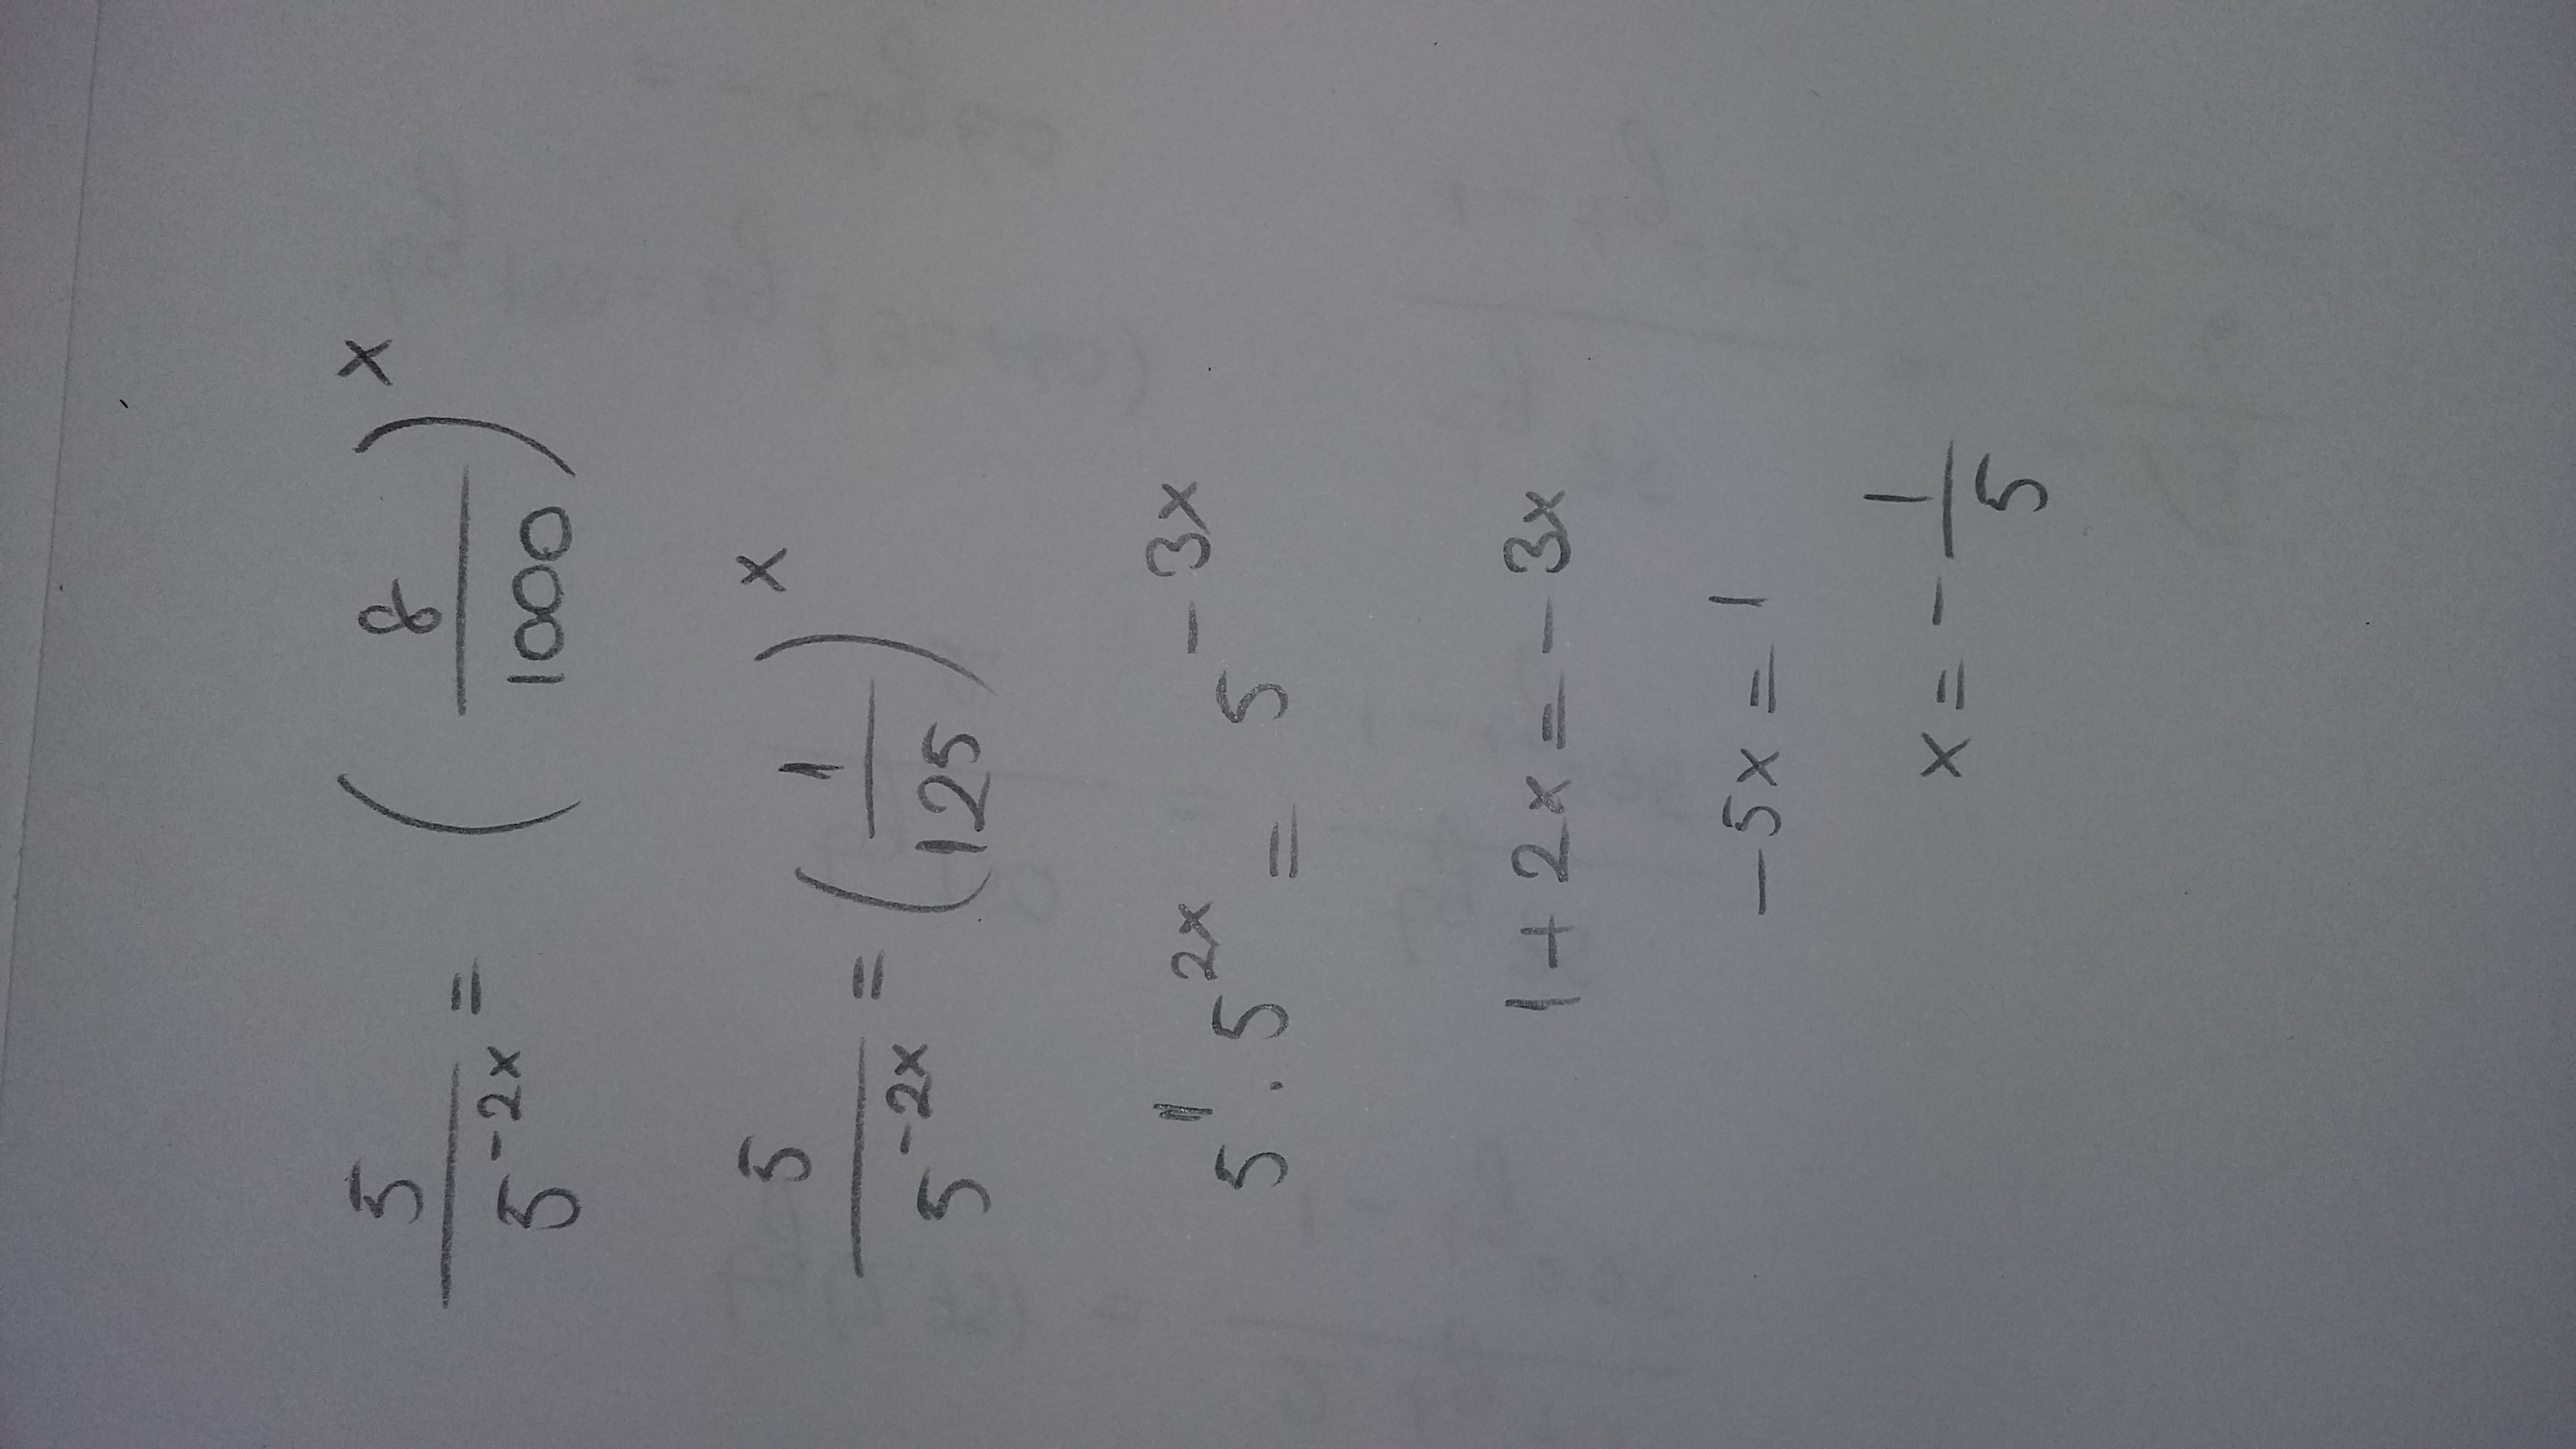 5/5^-2x = (8/1000)^x
5/5^-2x = (1/125)^x
5^1 . 5^2x = 5^-3x
1 + 2x = -3x
-5x = 1
x = -1/5